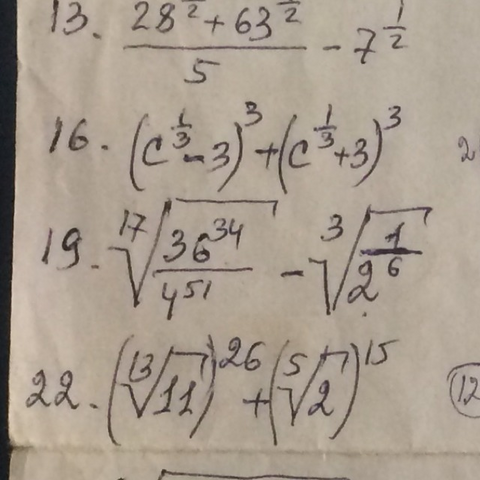 13. \frac{28^{\frac{1}{2}} + 63^{\frac{1}{2}}}{5} - 7^{\frac{1}{2}}
16. (c^{\frac{1}{3}} - 3)^3 + (c^{\frac{1}{3}} + 3)^3 2
19. \sqrt[17]{\frac{36^{34}}{4^{51}}} - \sqrt[3]{\frac{1}{2^6}}
22. (\sqrt[13]{11})^{26} + (\sqrt[5]{2})^{15} 12